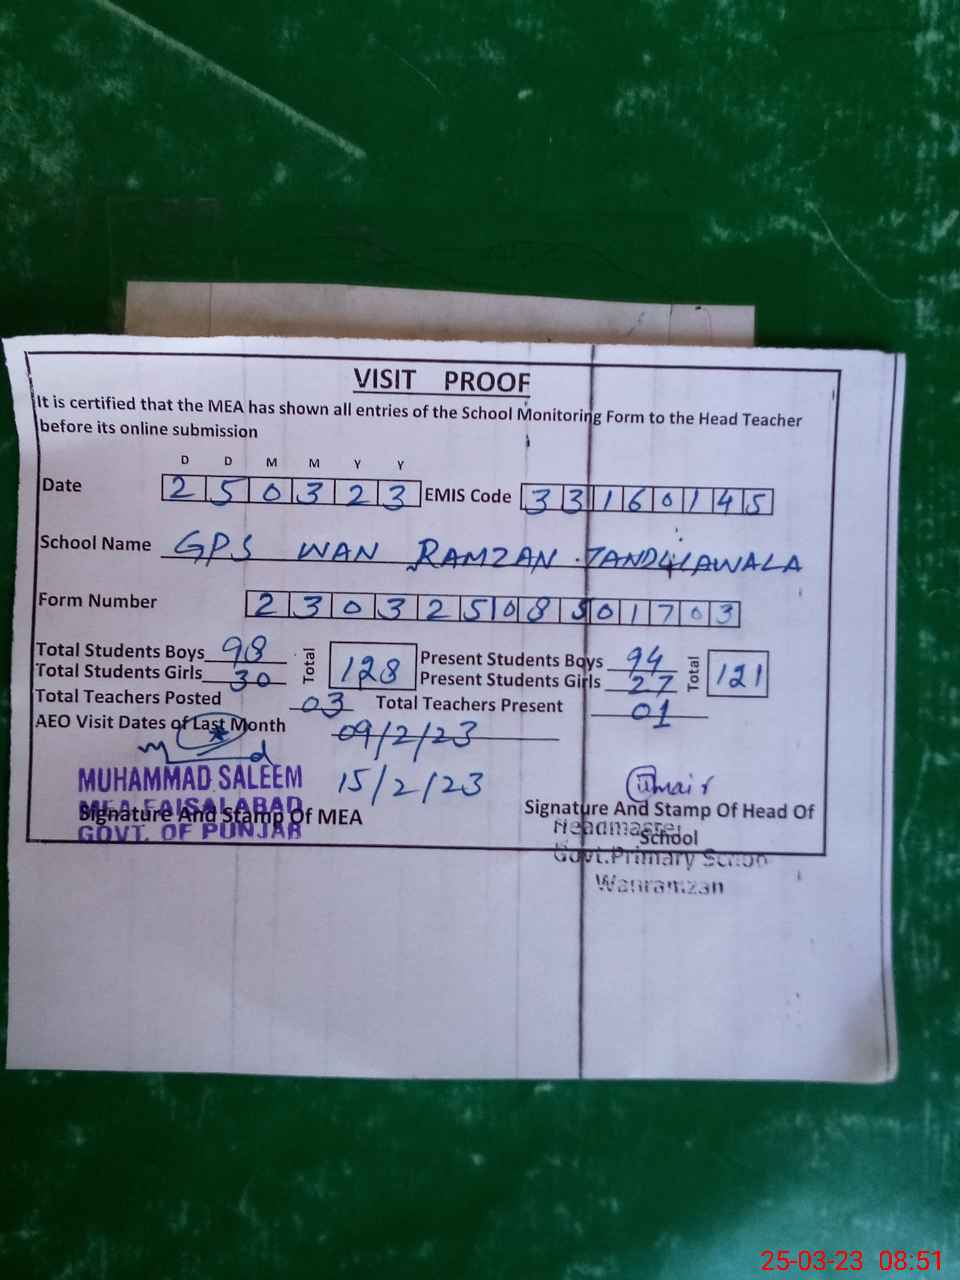 VISIT PROOF
It is certified that the MEA has shown all entries of the School Monitoring Form to the Head Teacher
before its online submission
D D M M Y Y
Date 2 5 0 3 2 3 EMIS Code 3 3 1 6 0 1 4 5
School Name GPS WAN RAMZAN TANDLIAWALA
Form Number 2 3 0 3 2 5 0 8 5 0 1 7 0 3
Total Students Boys 98 Total 128 Present Students Boys 94 Total 121
Total Students Girls 30 Present Students Girls 27
Total Teachers Posted 03 Total Teachers Present 01
AEO Visit Dates of Last Month 09/2/23
15/2/23
MUHAMMAD SALEEM
MEA FAISALABAD
Signature And Stamp Of MEA
GOVT. OF PUNJAB
Umair
Signature And Stamp Of Head Of
School
Headmaster
Govt.Primary School
Wanramzan
25-03-23 08:51